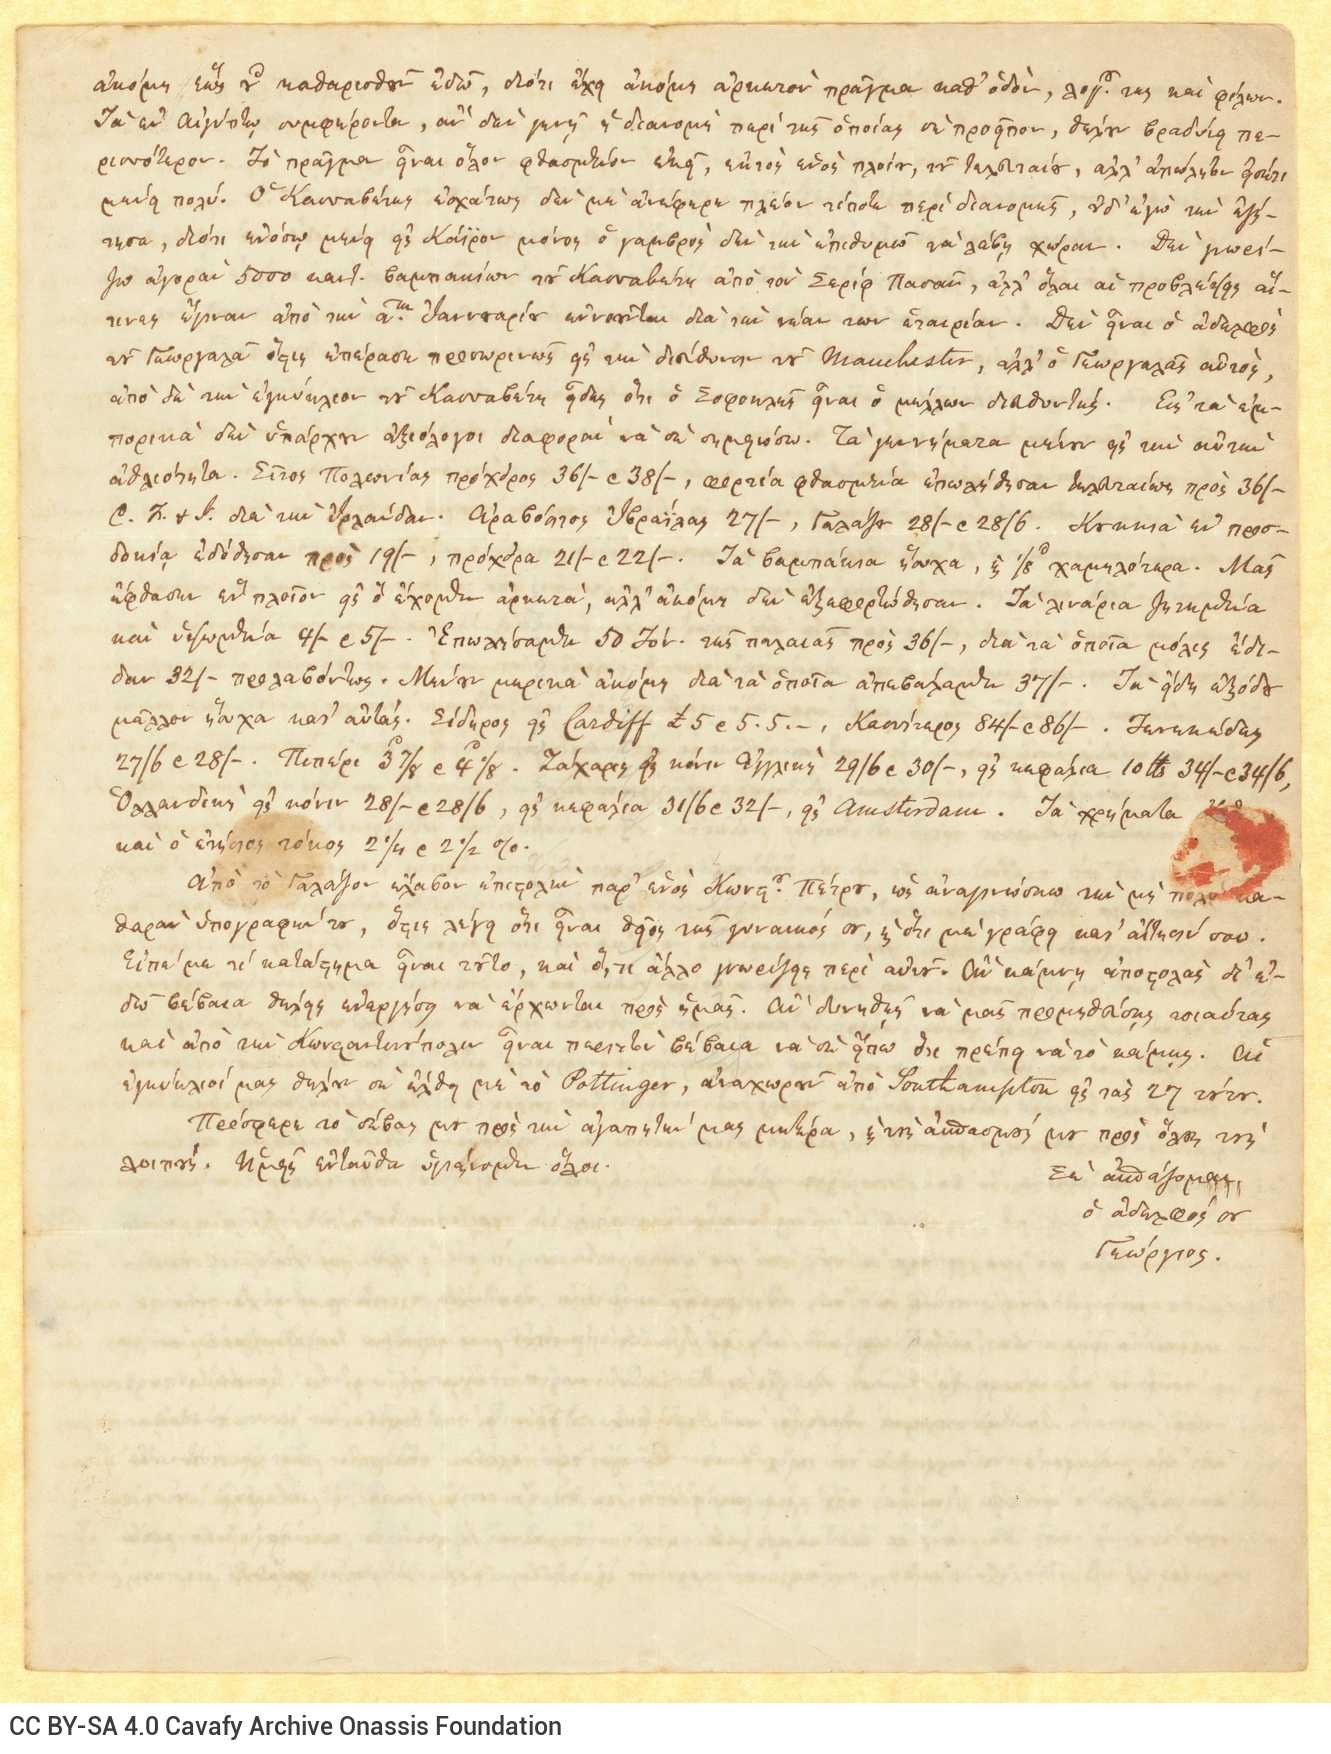 ἀκόμη ἕως οὗ καθαρισθοῦν ἐδῶ, διότι ἔχει ἀκόμη ἀρκετὸν πρᾶγμα καθ' ὁδὸν, λογ. της καὶ φίλων.
Τὰ ἐν Αἰγύπτῳ συμφέροντα, ἂν δὲν γενῇ ἡ διανομὴ περὶ τῆς ὁποίας σὲ προεῖπον, θέλουν βραδύνει πε-
ρισσότερον. Τὸ πρᾶγμα εἶναι ὅλον φθασμένον ἐκεῖ, ἐκτὸς ἑνὸς πλοίου, τοῦ τελευταίου, ἀλλ' ἀπώλητον ὡσότι
μένει πολύ. Ὁ Κασσαβέτης ἐσχάτως δὲν μὲ ἀνέφερε πλέον τίποτε περὶ διανομῆς, οὐδ' ἐγὼ τὴν ἐζή-
τησα, διότι ἐνόσῳ μένει εἰς Κάϊρον μόνος ὁ γαμβρὸς δὲν τὴν ἐπιθυμῶ νὰ λάβῃ χώραν. Δὲν γνωρί-
ζω ἀγορὰν 5000 καντ. βαμπακίων τοῦ Κασσαβέτη ἀπὸ τὸν Σερὶφ Πασᾶν, ἀλλ' ὅλαι αἱ προβλέψεις αἵ-
τινες ἔγιναν ἀπὸ τὴν αην Ἰαννουαρίου ἐννοοῦνται διὰ τὴν νέαν των ἑταιρίαν. Δὲν εἶναι ὁ ἀδελφὸς
τοῦ Γεωργαλᾶ ὅστις ἐπέρασε προσωρινῶς εἰς τὴν διεύθυνσιν τοῦ Manchester, ἀλλ' ὁ Γεωργαλᾶς αὐτὸς,
ἀπὸ δὲ τὴν ἐγκύκλιον τοῦ Κασσαβέτη εἶδες ὅτι ὁ Σοφοκλῆς εἶναι ὁ μέλλων διευθυντής. Εἰς τὰ ἐμ-
πορικὰ δὲν ὑπάρχουν ἀξιόλογοι διαφοραὶ νὰ σὲ σημειώσω. Τὰ γεννήματα μένουν εἰς τὴν αὐτὴν
ἀθλιότητα. Σῖτος Πολωνίας πρόχειρος 36/- @ 38/-, φορτία φθασμένα ἐπωλήθησαν τελευταίως πρὸς 36/-
C. F. & I. διὰ τὴν Ἰρλανδίαν. Ἀραβόσιτος Ἰβραΐλας 27/-, Γαλάζου 28/- @ 28/6. Κουκκιὰ ἐν προσ-
δοκίᾳ ἐδόθησαν πρὸς 19/-, πρόχειρα 21/- @ 22/-. Τὰ βαμπάκια ἥσυχα, ἢ 1/8 χαμηλότερα. Μᾶς
ἔφθασεν ἓν πλοῖον εἰς ὃ ἔχομεν ἀρκετὰ, ἀλλ' ἀκόμη δὲν ἐξεφορτώθησαν. Τὰ λινάρια ζητημένα
καὶ ὑψωμένα 4/- @ 5/-. Ἐπωλήσαμεν 50 Τόν. τῆς παλαιᾶς πρὸς 36/-, διὰ τὰ ὁποῖα μόλις ἔδι-
δαν 32/- προλαβόντως. Μένουν μερικὰ ἀκόμη διὰ τὰ ὁποῖα ἀπεβάλαμεν 37/-. Τὰ εἴδη ἐξόδου
μᾶλλον ἥσυχα κατ' αὐτάς. Σίδηρος εἰς Cardiff £ 5 @ 5.5.-, Κασσίτερος 84/- @ 86/-. Τενεκέδες
27/6 @ 28/-. Πιπέρι 3 7/8 @ 4 1/8. Ζάχαρις εἰς κόνιν Ἀγγλικὴ 29/6 @ 30/-, εἰς κεφάλια 10 lbs 34/- @ 34/6,
Ὁλλανδικὴ εἰς κόνιν 28/- @ 28/6, εἰς κεφάλια 31/6 @ 32/-, εἰς Amsterdam. Τὰ χρήματα
καὶ ὁ ἐτήσιος τόκος 2 1/4 @ 2 1/2 %.
Ἀπὸ τὸ Γαλάζιον ἔλαβον ἐπιστολὴν παρ' ἑνὸς Κωνστ. Πέτρου, ὡς ἀναγινώσκω τὴν μὴ πολὺ κα-
θαρὰν ὑπογραφήν του, ὅστις λέγει ὅτι εἶναι θεῖος τῆς γυναικός σου, καὶ ὅτι μὲ γράφει κατ' αἴτησίν σου.
Εἰπέ με τί κατάστημα εἶναι τοῦτο, καὶ ὅ,τι ἄλλο γνωρίζεις περὶ αὐτοῦ. Ἂν κάμνῃ ἀποστολὰς δι' ἐ-
δῶ βέβαια θέλεις ἐνεργήσει νὰ ἔρχωνται πρὸς ἡμᾶς. Ἂν δυνηθῇς νὰ μᾶς προμηθεύσῃς τοιαύτας
καὶ ἀπὸ τὴν Κωνσταντινούπολιν εἶναι περιττὸν βέβαια νὰ σὲ εἴπω ὅτι πρέπει νὰ τὸ κάμῃς. Αἱ
ἐγκύκλιοί μας θέλουν σὲ ἔλθει μὲ τὸ Pottinger, ἀναχωροῦν ἀπὸ Southampton εἰς τὰς 27 τούτου.
Πρόσφερε τὸ σέβας μου πρὸς τὴν ἀγαπητήν μας μητέρα, καὶ τοὺς ἀσπασμούς μου πρὸς ὅλους τοὺς
λοιπούς. Ἡμεῖς ἐνταῦθα ὑγιαίνομεν ὅλοι.
Σὲ ἀσπάζομαι,
ὁ ἀδελφός σου
Γεώργιος.
CC BY-SA 4.0 Cavafy Archive Onassis Foundation